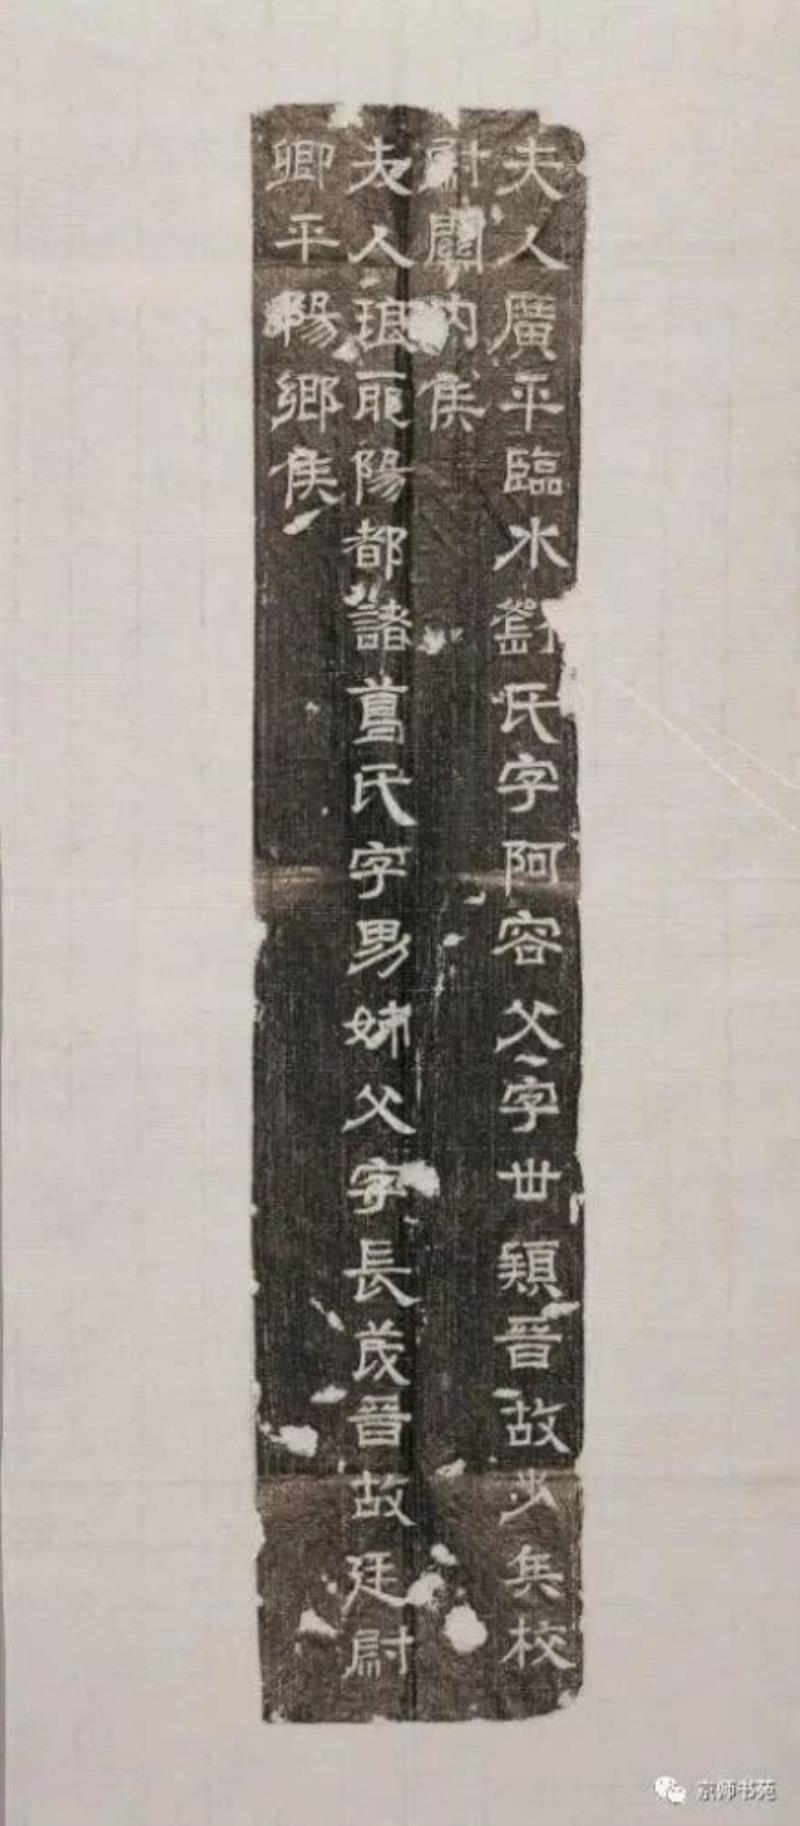 夫人廣平臨水劉氏字阿容父字世穎晉故步兵校
尉關內侯
夫人琅耶陽都諸葛氏字男姊父字長茂晉故廷尉
卿平陽鄉侯
京师书苑